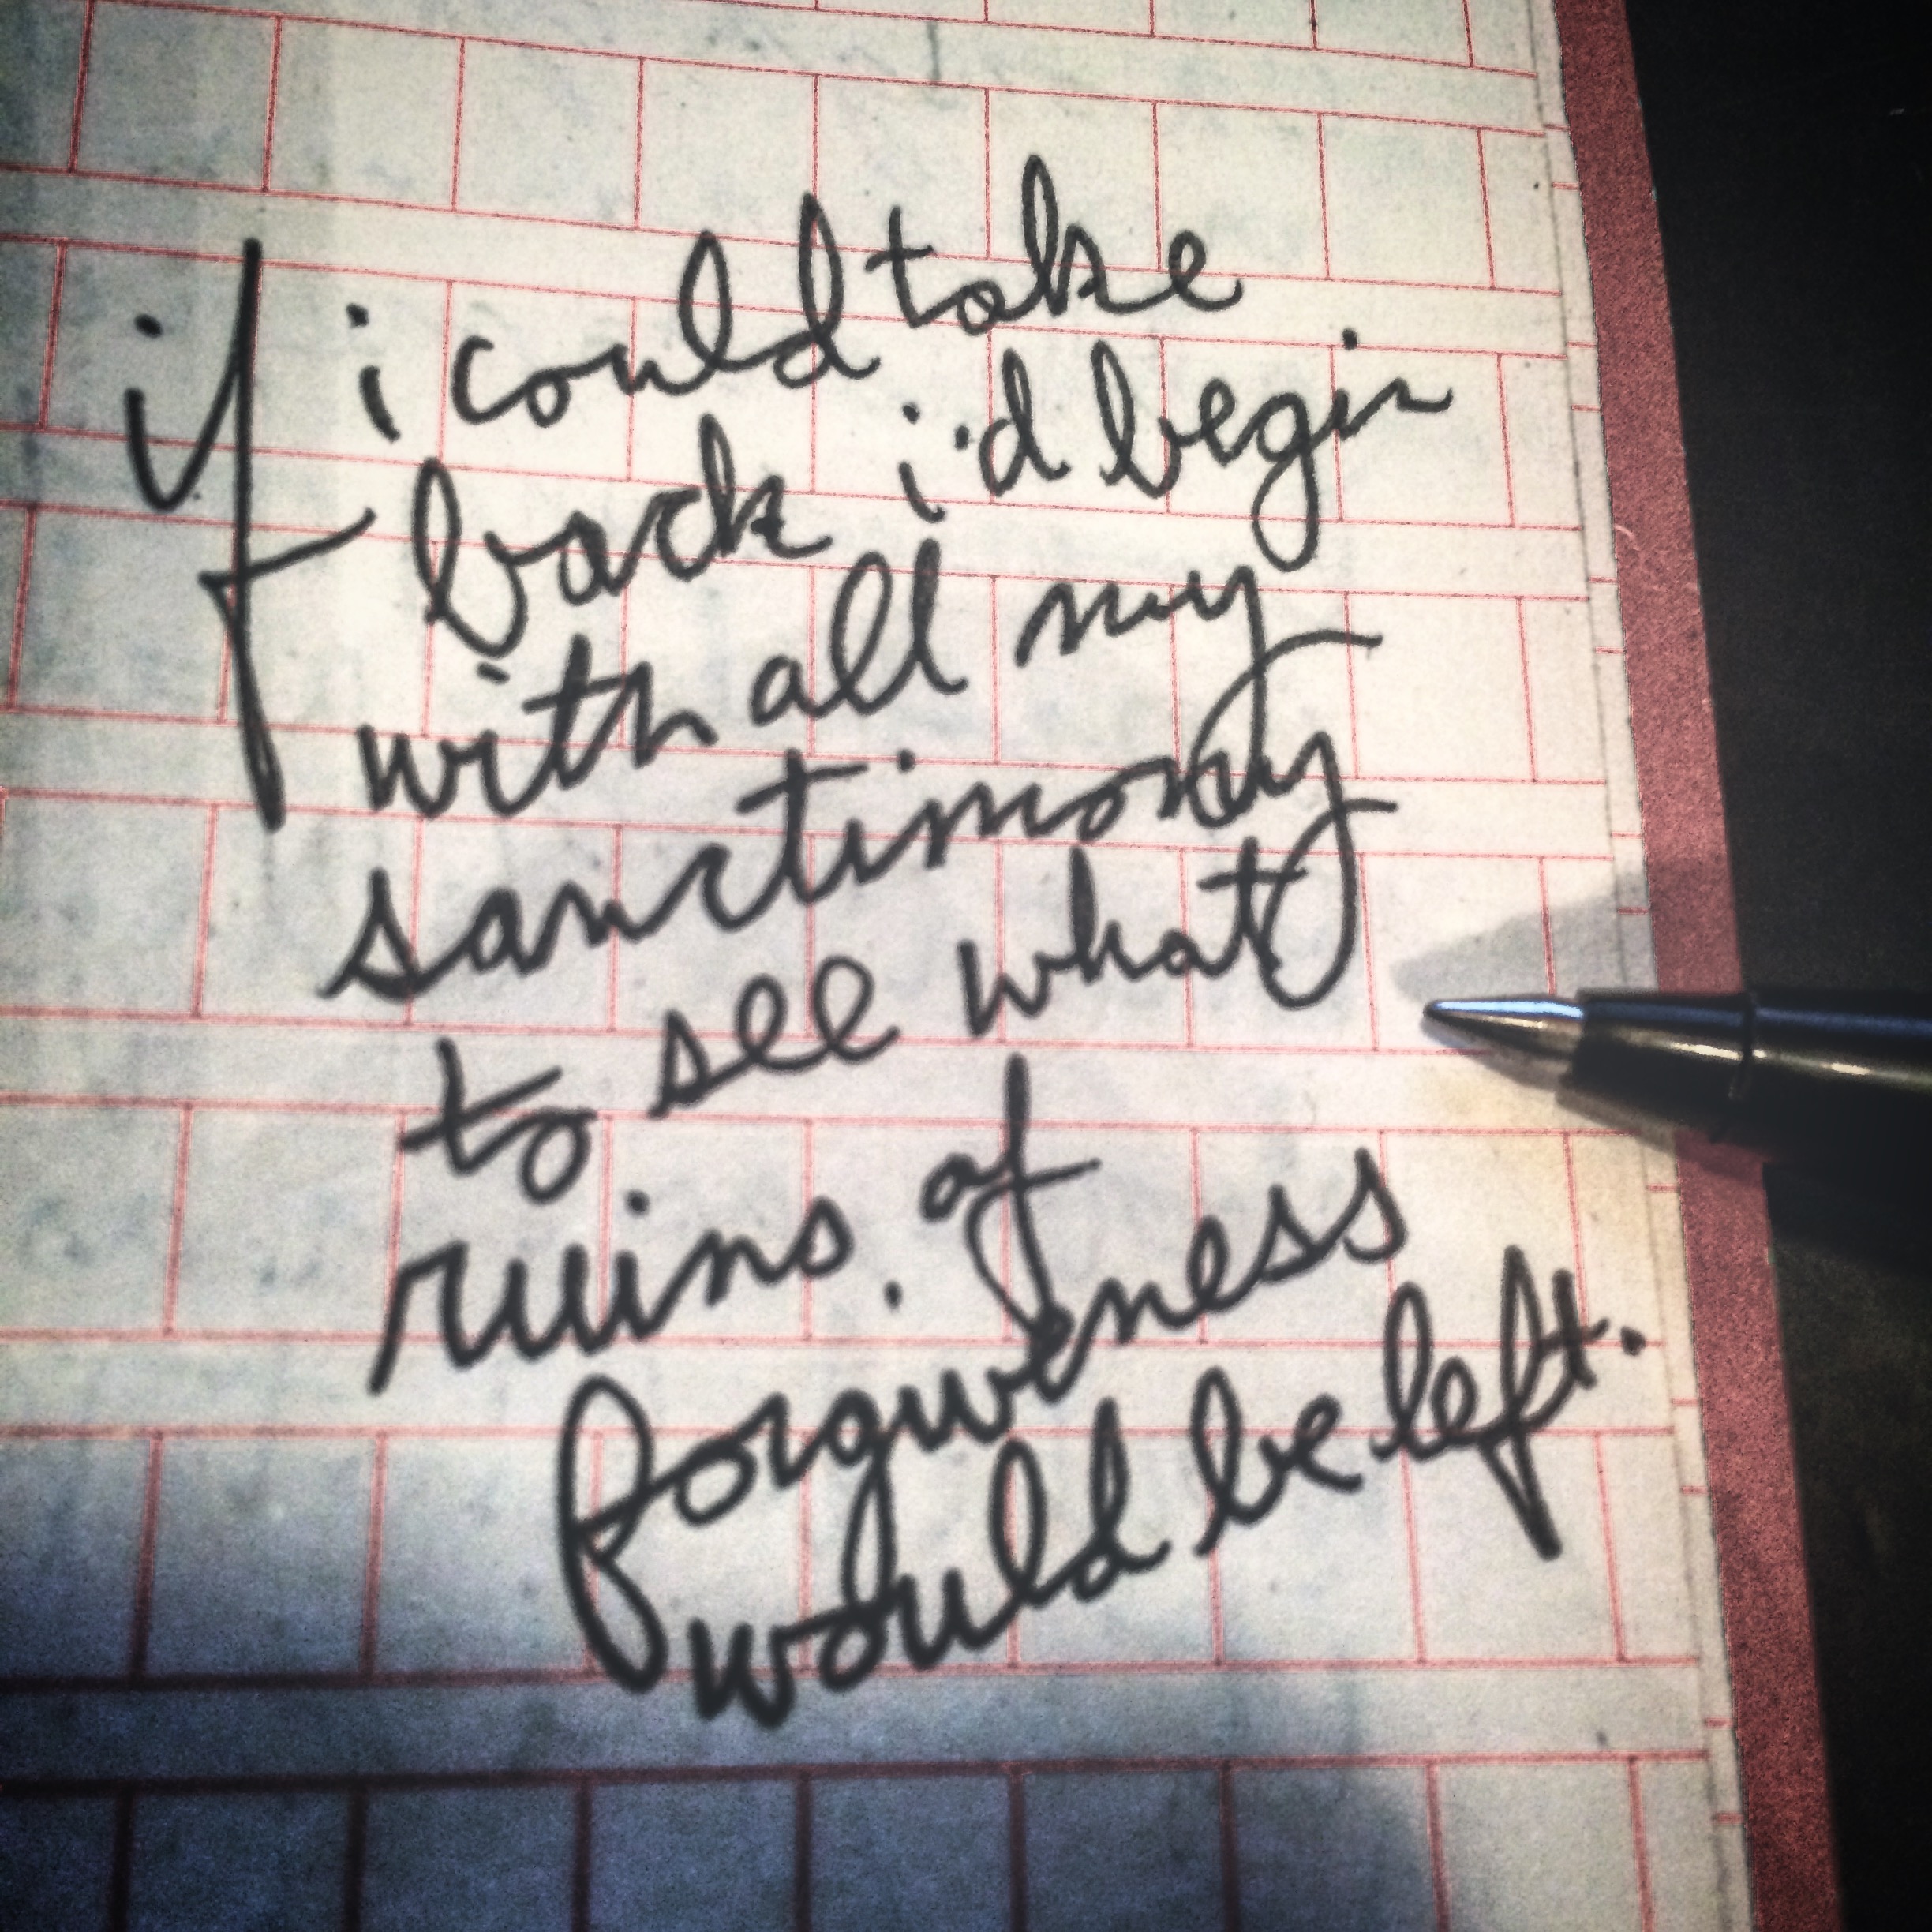 if i could take
back i'd begin
with all my
sanctimony
to see what
ruins of
forgiveness
would be left.